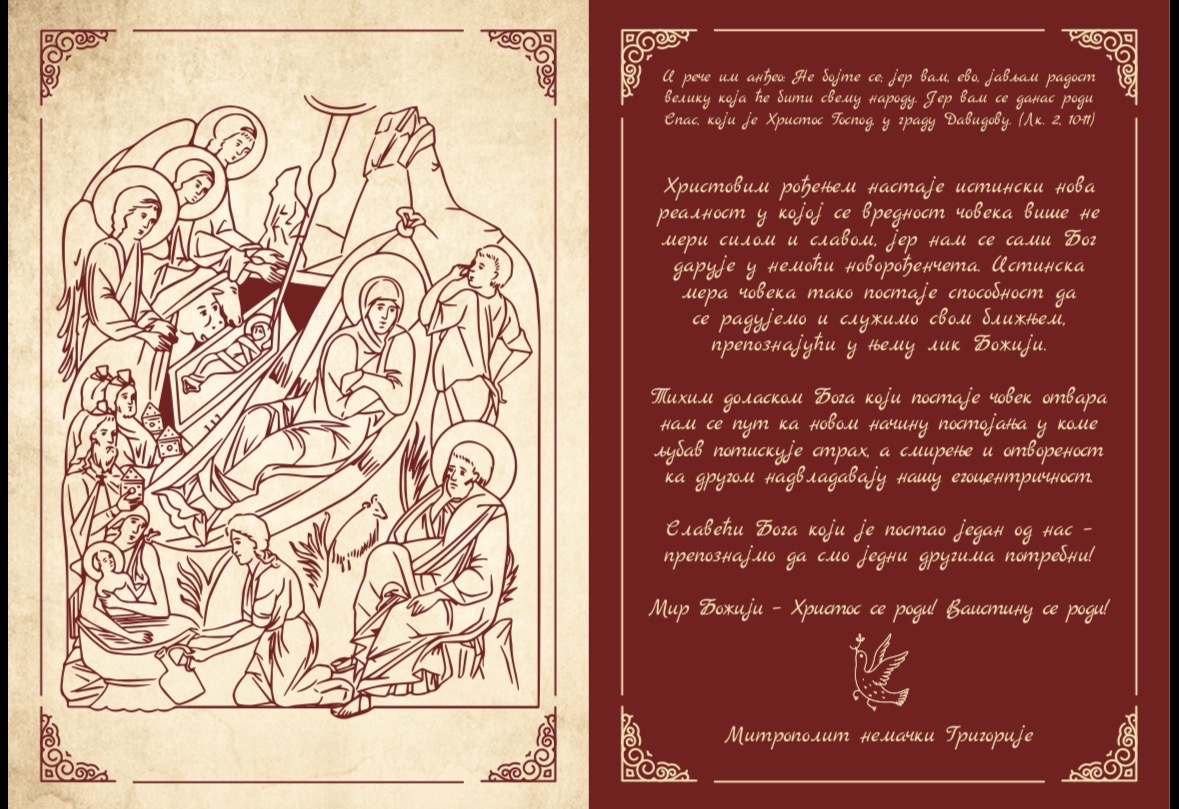 И рече им анђео: Не бојте се, јер вам, ево, јављам радост
велику која ће бити свему народу. Јер вам се данас роди
Спас, који је Христос Господ, у граду Давидову. (Лк. 2, 10-11)
Христовим рођењем настаје истински нова
реалност у којој се вредност човека више не
мери силом и славом, јер нам се сами Бог
дарује у немоћи новорођенчета. Истинска
мера човека тако постаје способност да
се радујемо и служимо свом ближњем,
препознајући у њему лик Божији.
Тихим доласком Бога који постаје човек отвара
нам се пут ка новом начину постојања у коме
љубав потискује страх, а смирење и отвореност
ка другом надвладавају нашу егоцентричност.
Славећи Бога који је постао један од нас –
препознајмо да смо једни другима потребни!
Мир Божији – Христос се роди! Ваистину се роди!
Митрополит немачки Григорије